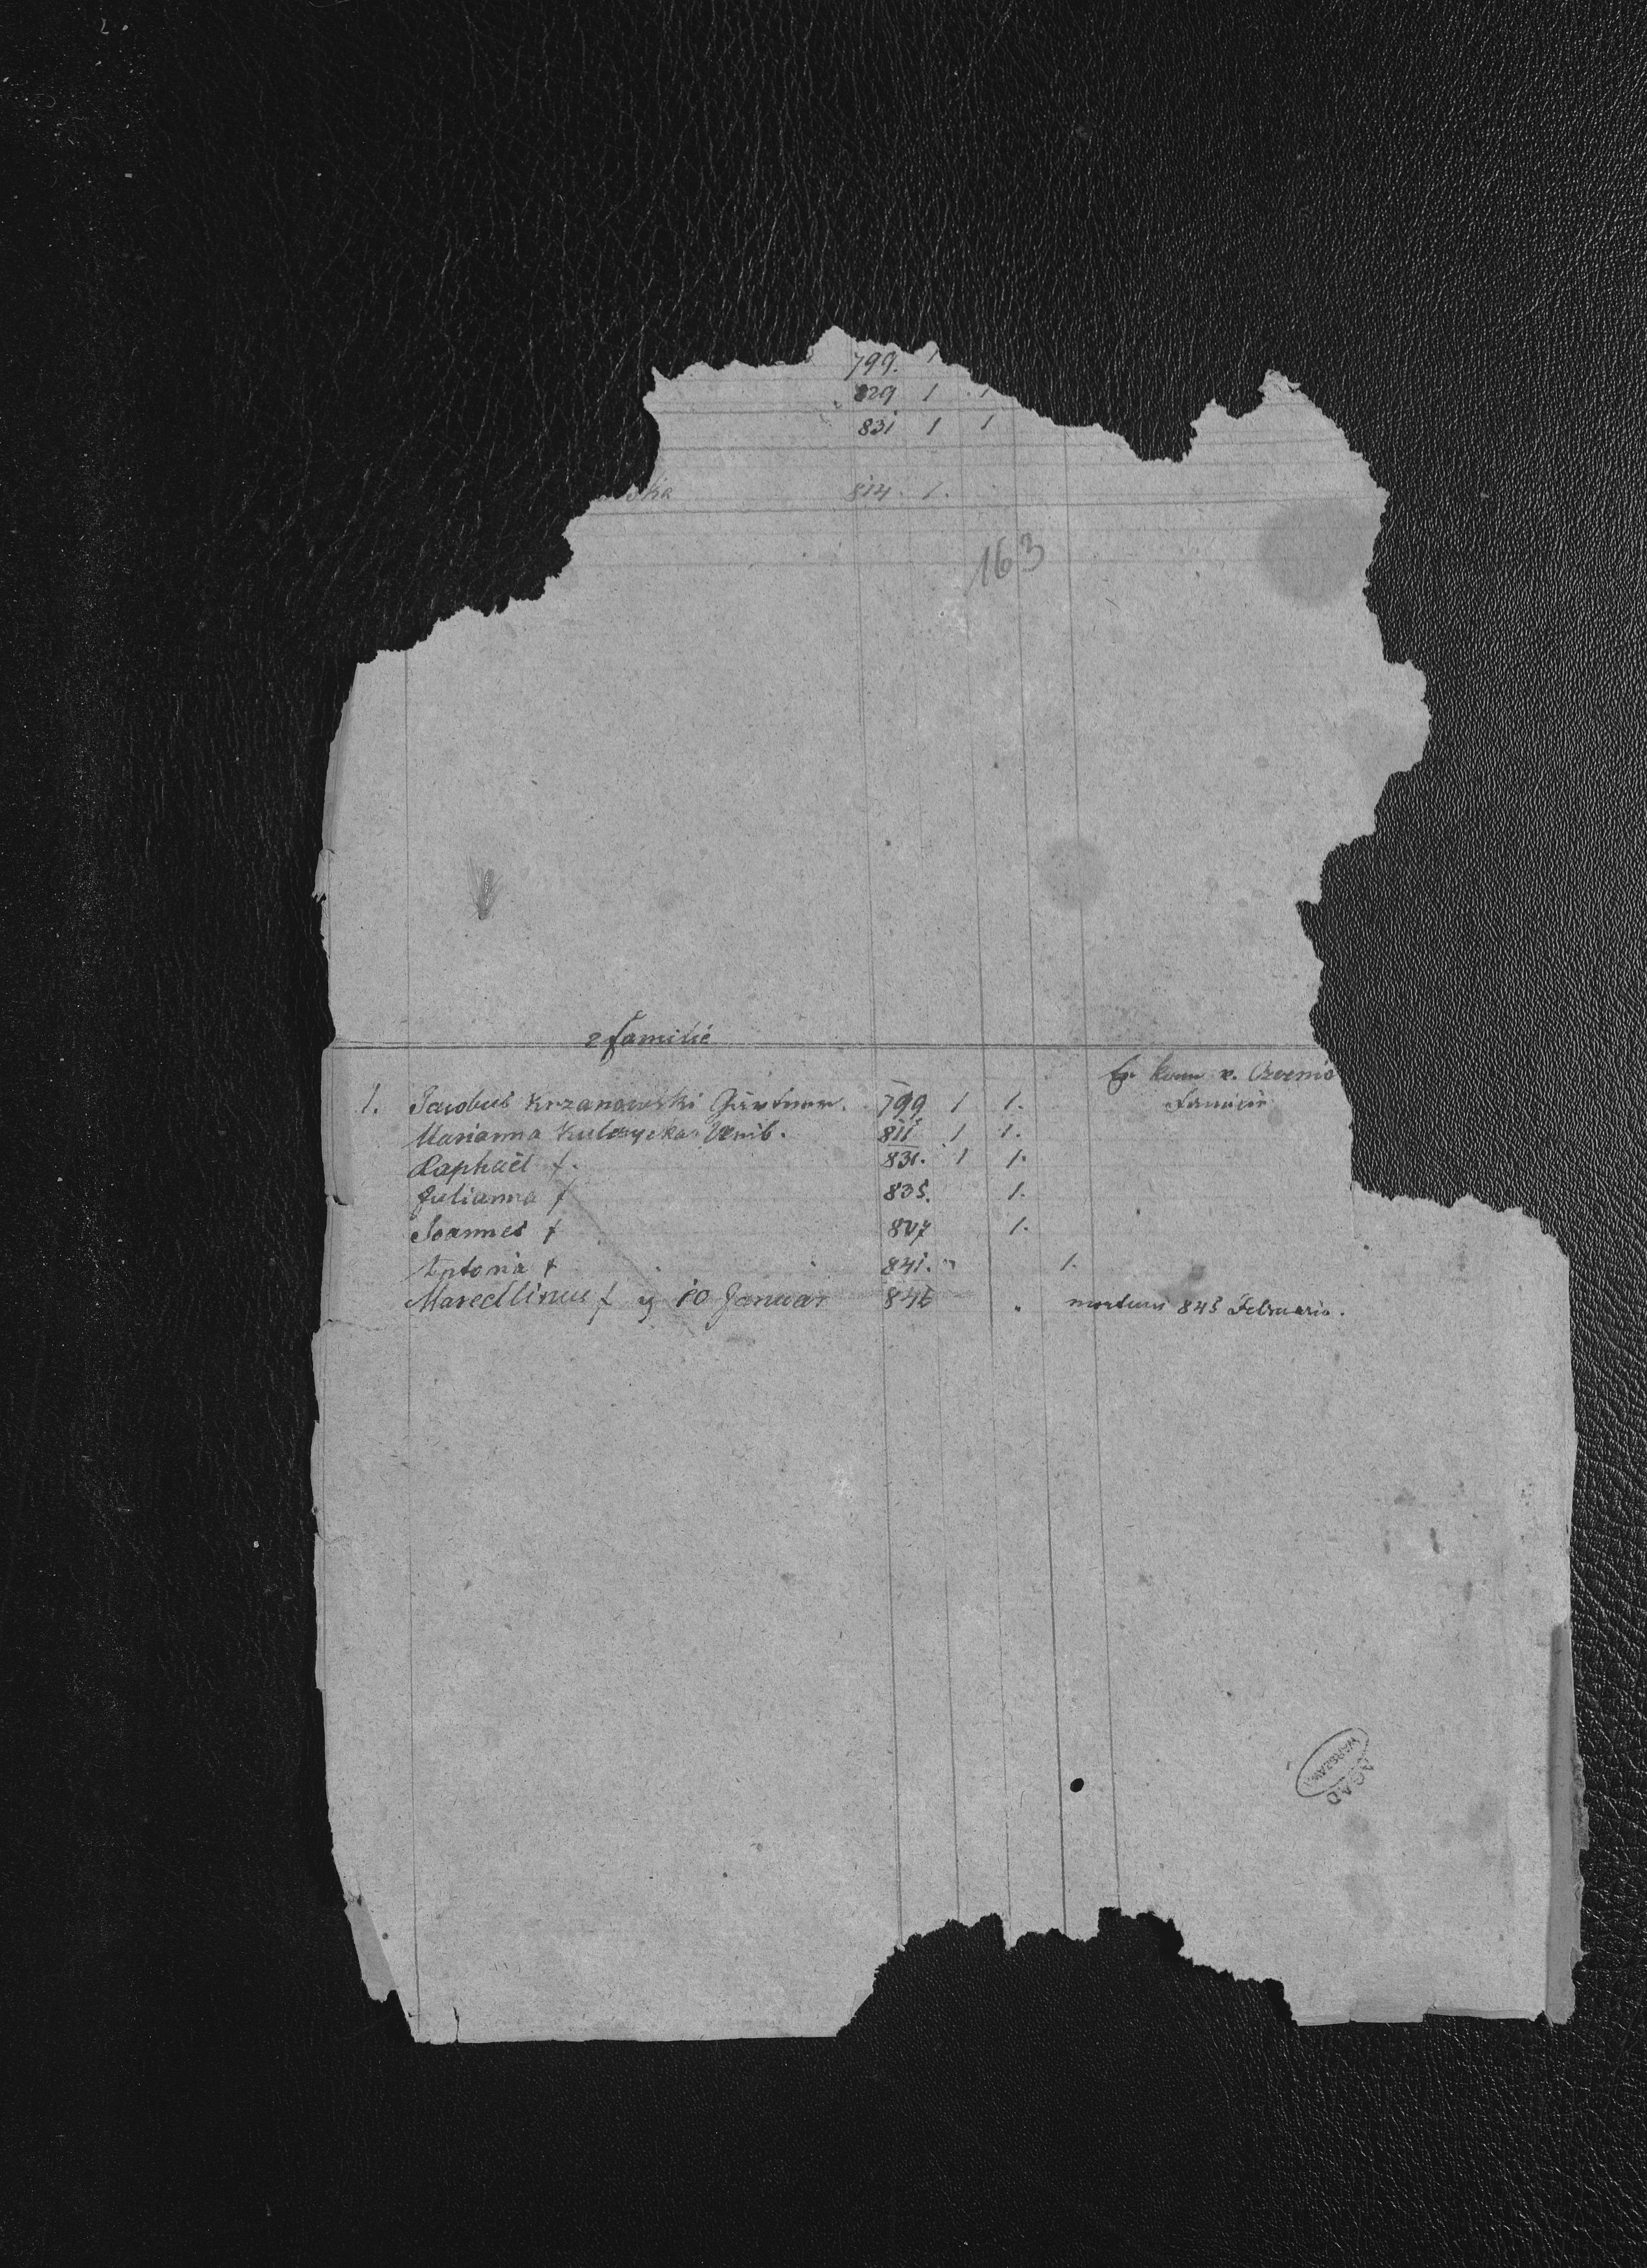 799. 1
829 1 1
831 1 1
ska 814. 1.
163
2 familie
1. Jacobus Krzanowski Gärtner. 799 1 1.
Marianna Weib. 811 1 1.
Raphaël f. 831. 1 1.
Julianna f 835. 1.
Joannes f 1.
Antonia f 841. " 1.
Marcellinus f 10 Januar 845 " mortuus 845 Februario.
AGAD
WARSZAWA